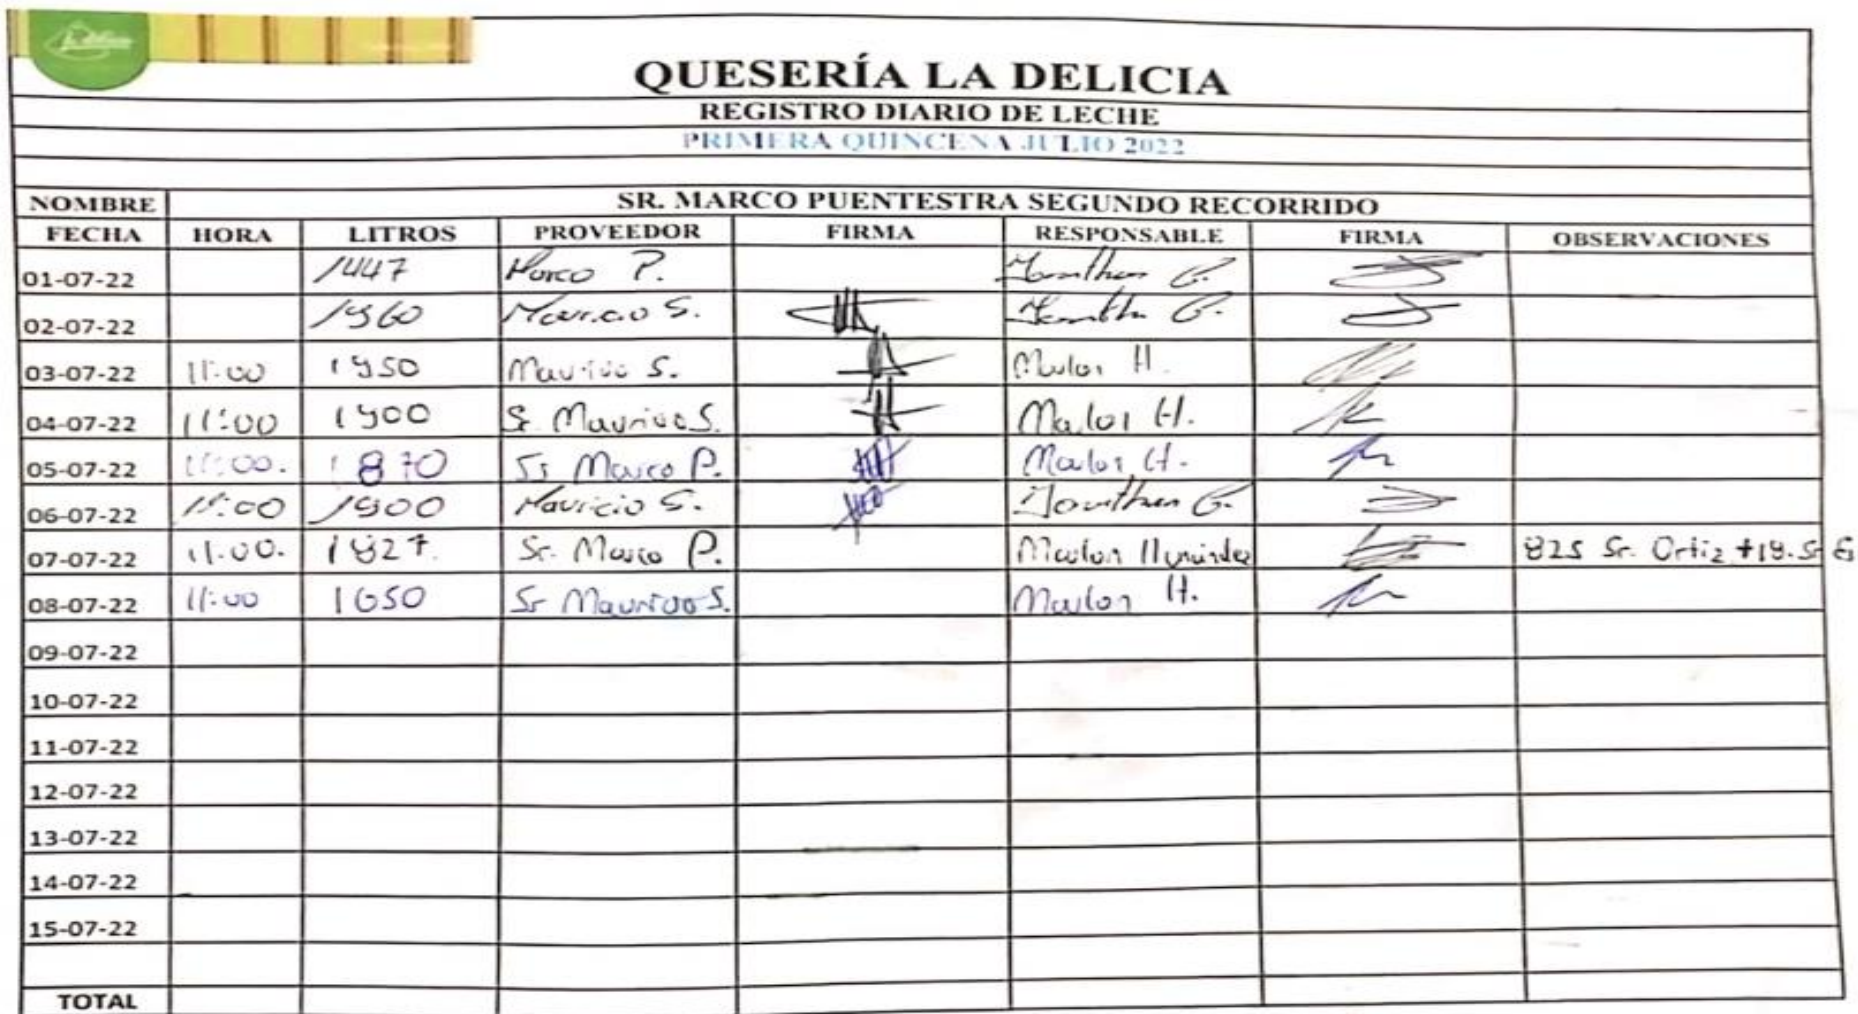 QUESERÍA LA DELICIA
REGISTRO DIARIO DE LECHE
PRIMERA QUINCENA JULIO 2022
NOMBRE SR. MARCO PUENTESTRA SEGUNDO RECORRIDO
FECHA HORA LITROS PROVEEDOR FIRMA RESPONSABLE FIRMA OBSERVACIONES
01-07-22 1447 Marco P. Jonathan G.
02-07-22 1960 Mauricio S. Jonathan G.
03-07-22 11:00 1950 Mauricio S. Marlon H.
04-07-22 11:00 1900 Sr. Mauricio S. Marlon H.
05-07-22 11:00. 1870 Sr. Marco P. Marlon H.
06-07-22 11:00 1900 Mauricio S. Jonathan G.
07-07-22 11:00. 1827. Sr. Marco P. Marlon Hernández 825 Sr. Ortiz +19. Sr
08-07-22 11:00 1650 Sr Mauricio S. Marlon H.
09-07-22
10-07-22
11-07-22
12-07-22
13-07-22
14-07-22
15-07-22
TOTAL